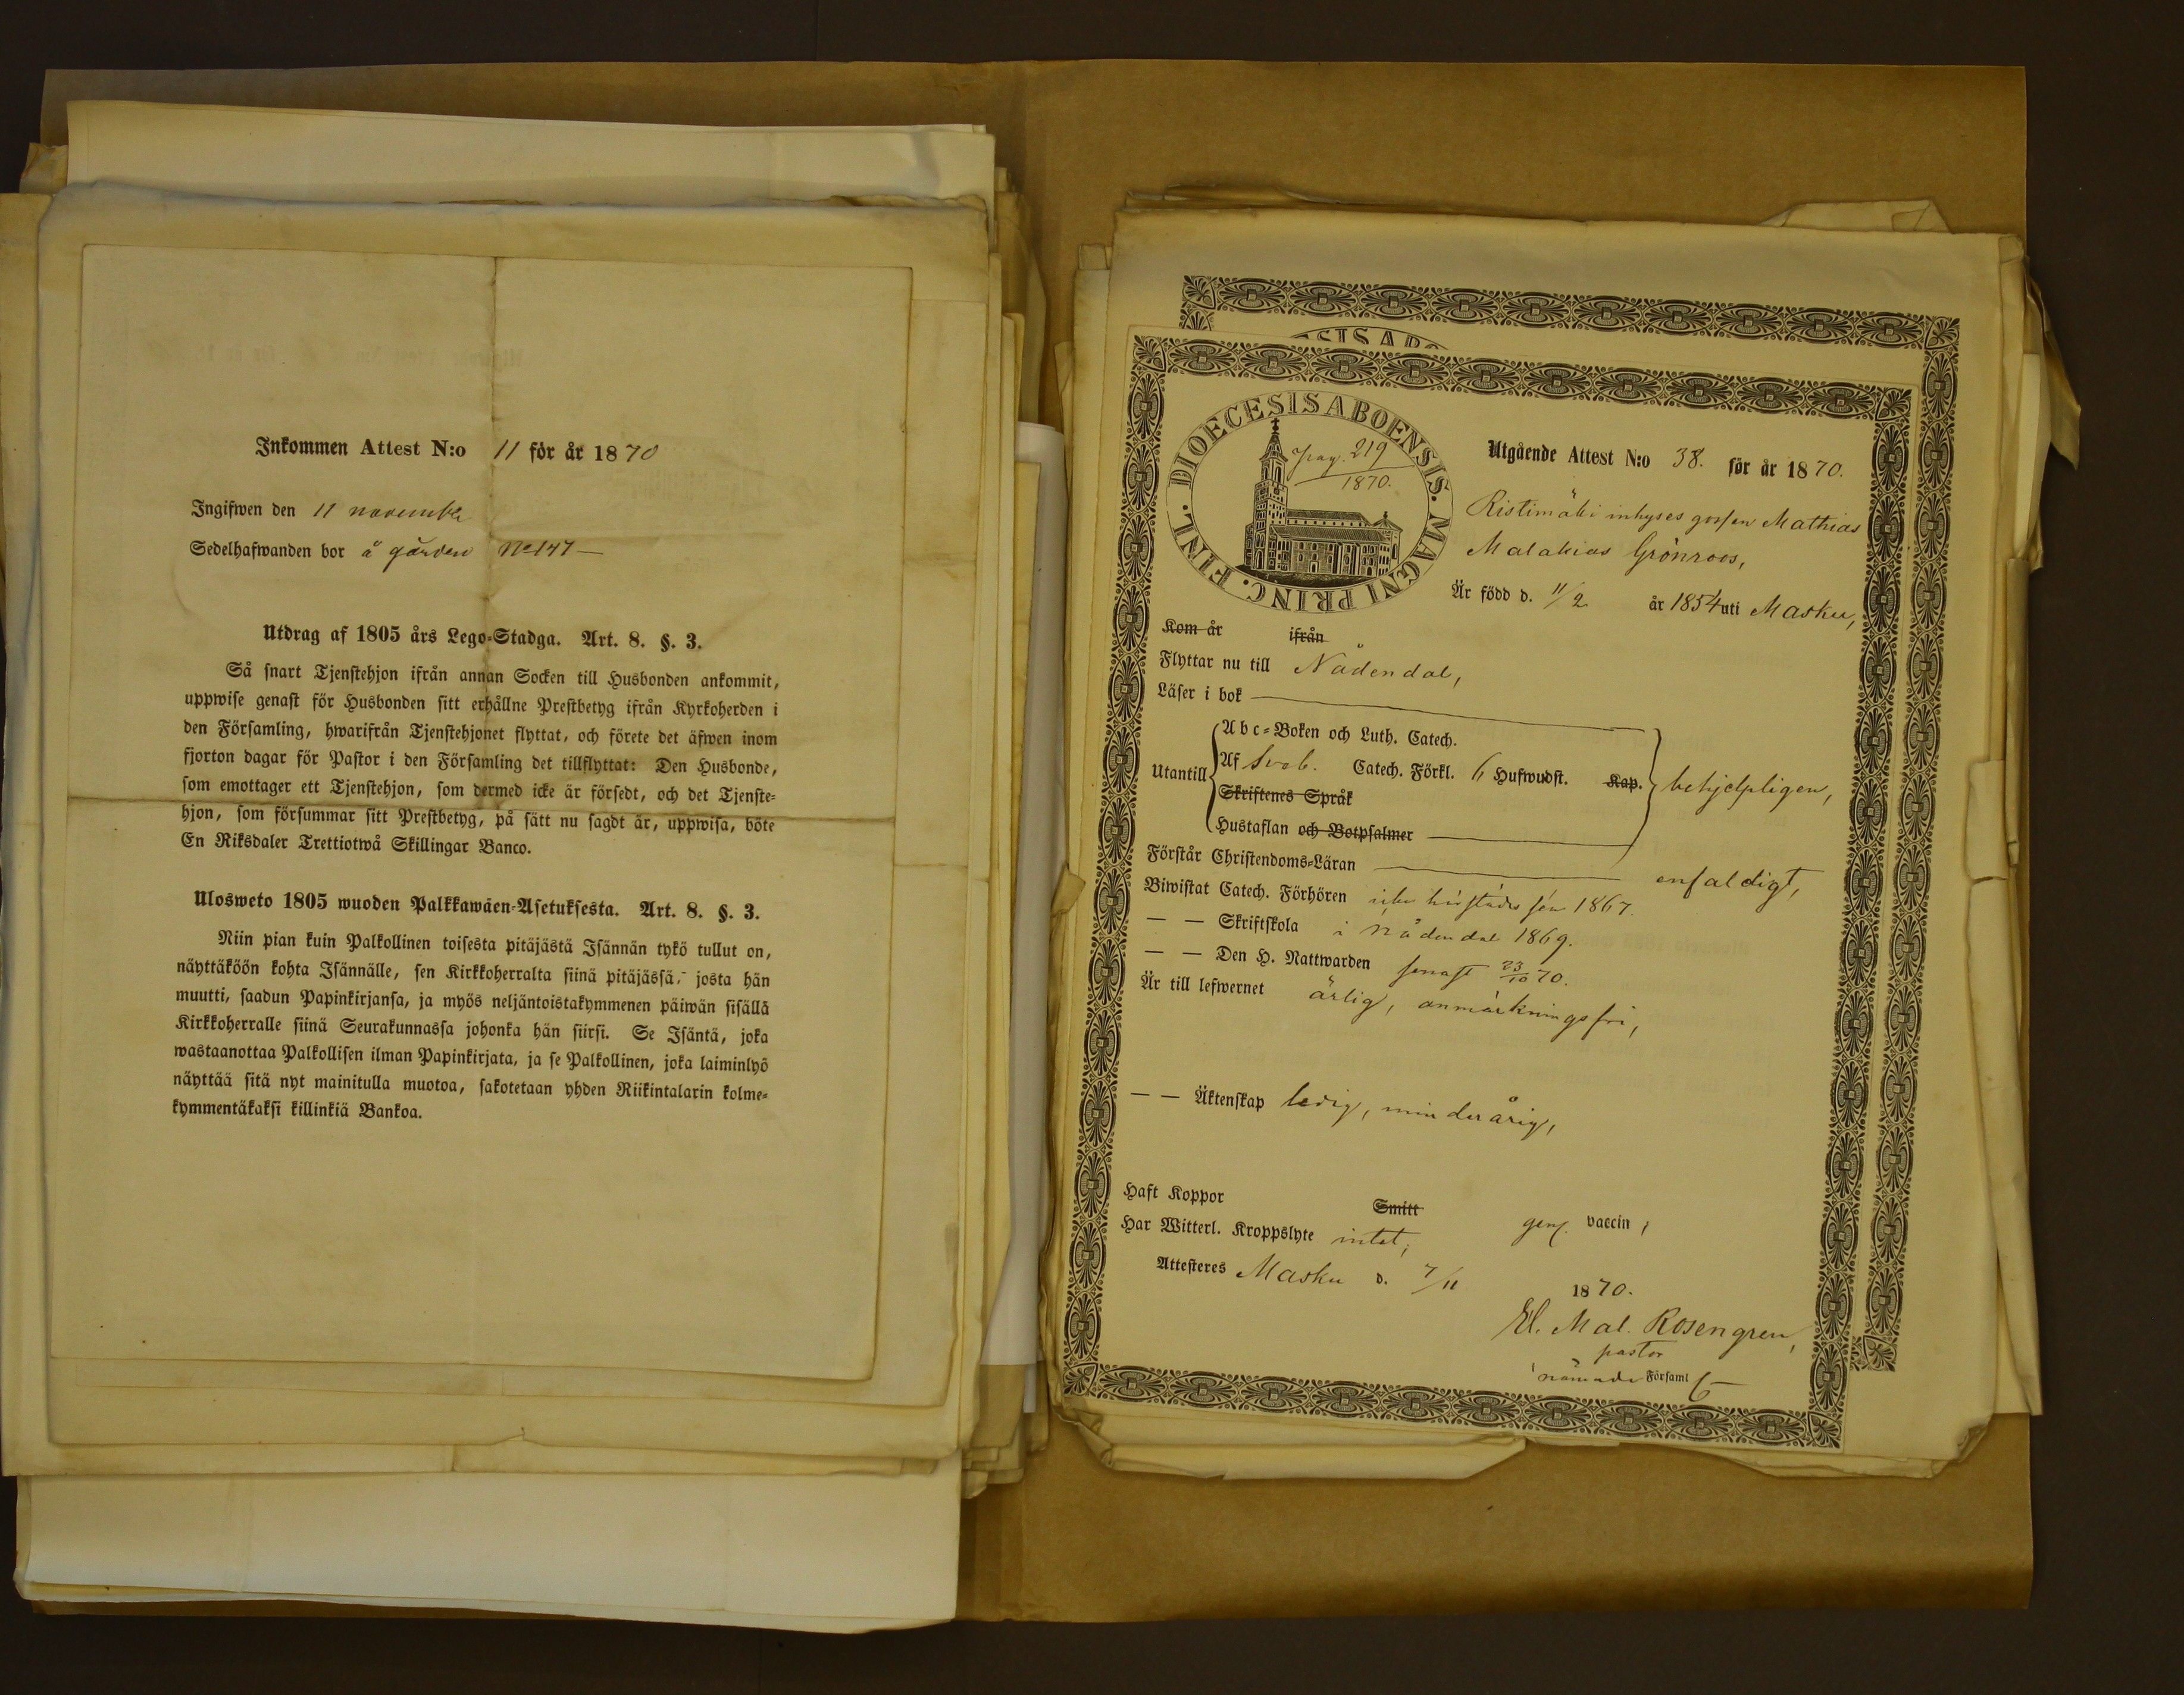 Inkommen Attest N:o 11 för år 1870
Ingifwen den 11 november
Sedelhafwanden bor å gården No 147
Utdrag af 1805 års Lego-Stadga. Art. 8. §. 3.
Så snart Tjenstehjon ifrån annan Socken till Husbonden ankommit,
uppwise genast för Husbonden sitt erhållne Prestbetyg ifrån Kyrkoherden i
den Församling, hwarifrån Tjenstehjonet flyttat, och förete det äfwen inom
fjorton dagar för Pastor i den Församling det tillflyttat: Den Husbonde,
som emottager ett Tjenstehjon, som dermed icke är försedt, och det Tjenste-
hjon, som försummar sitt Prestbetyg, på sätt nu sagdt är, uppwisa, böte
En Riksdaler Trettiotwå Skillingar Banco.
Ulosweto 1805 wuoden Palkkawäen-Asetuksesta. Art. 8. §. 3.
Niin pian kuin Palkollinen toisesta pitäjästä Isännän tykö tullut on,
näyttäköön kohta Isännälle, sen Kirkkoherralta siinä pitäjässä, josta hän
muutti, saadun Papinkirjansa, ja myös neljäntoistakymmenen päiwän sisällä
Kirkkoherralle siinä Seurakunnassa johonka hän siirsi. Se Isäntä, joka
wastaanottaa Palkollisen ilman Papinkirjata, ja se Palkollinen, joka laiminlyö
näyttää sitä nyt mainitulla muotoa, sakotetaan yhden Riikintalarin kolme-
kymmentäkaksi killinkiä Bankoa.
DIOECESIS ABOENSIS. MAGNI PRINC. FINL.
pag. 219
1870.
Utgående Attest N:o 38. för år 1870.
Ristimäki inhyses gossen Mathias
Malakias Grönroos,
Är född d. 11/2 år 1854 uti Masku,
Kom år ifrån
Flyttar nu till Nådendal,
Läser i bok
Utantill
Abc-Boken och Luth. Catech.
Af Sveb. Catech. Förkl. 6 Hufwudst. Kap.
Skriftenes Språk
Hustaflan och Botpsalmer
behjelpligen,
Förstår Christendoms-Läran enfaldigt,
Biwistat Catech. Förhören 1867.
— — Skriftskola i Nådendal 1869.
— — Den H. Nattwarden senast 23/10 70.
Är till lefwernet ärlig, anmärkningsfri,
— — Äktenskap ledig, minderårig,
Haft Koppor Smitt gen. vaccin,
Har Witterl. Kroppslyte intet;
Attesteres Masku d. 7/11 1870.
El. Mal. Rosengren,
pastor
Församl